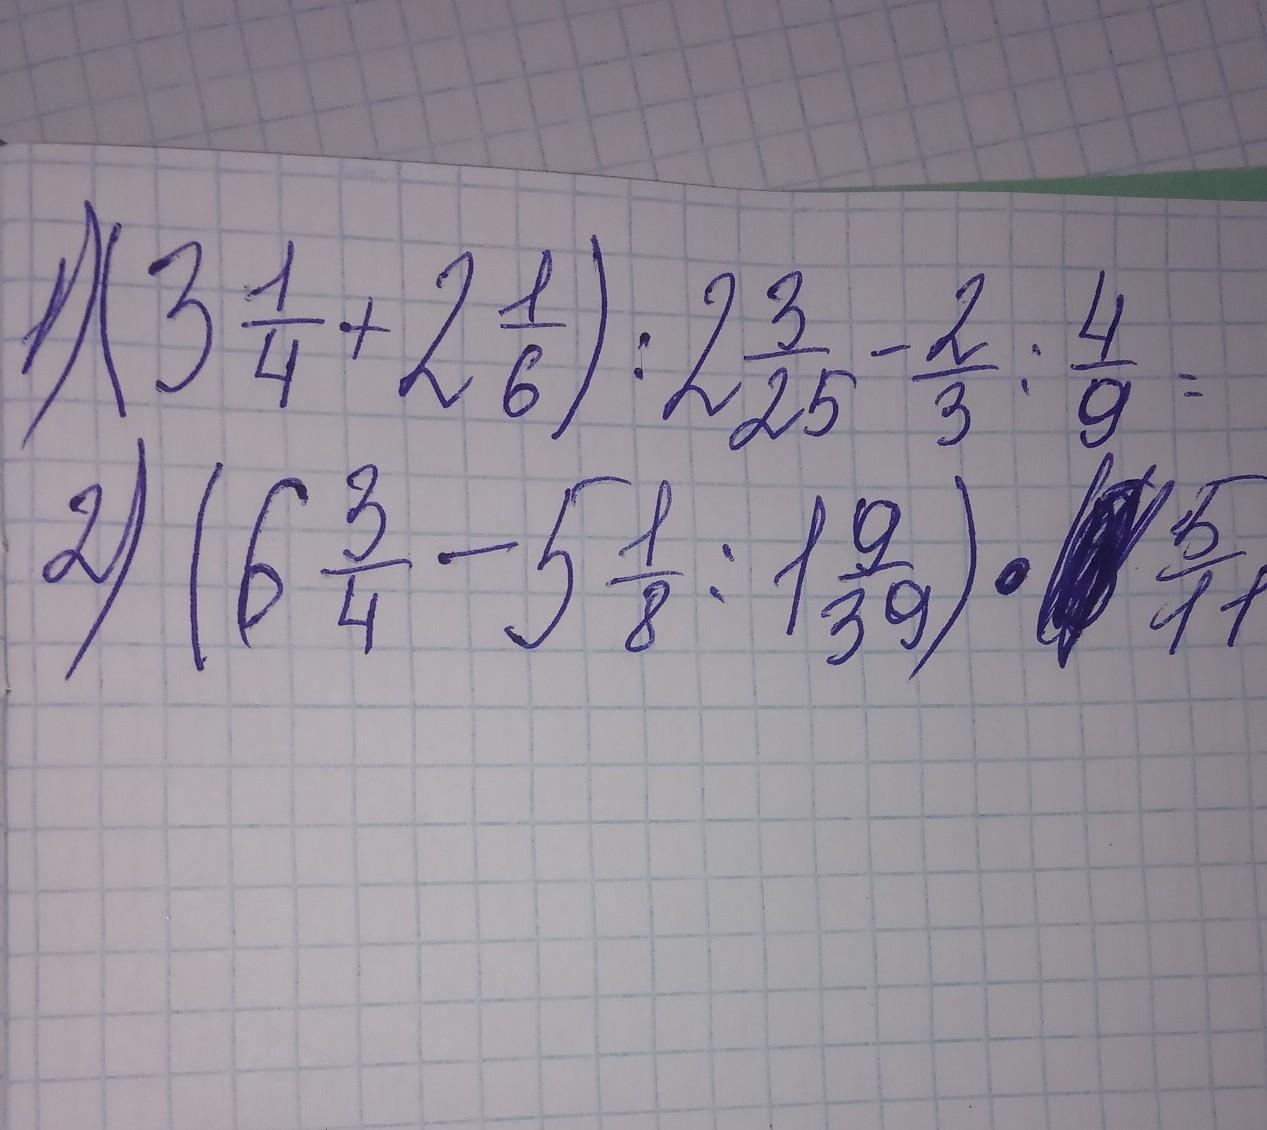 1) (3 1/4 + 2 1/6) : 2 3/25 - 2/3 : 4/9 =
2) (6 3/4 - 5 1/8 : 1 9/39) · 5/11